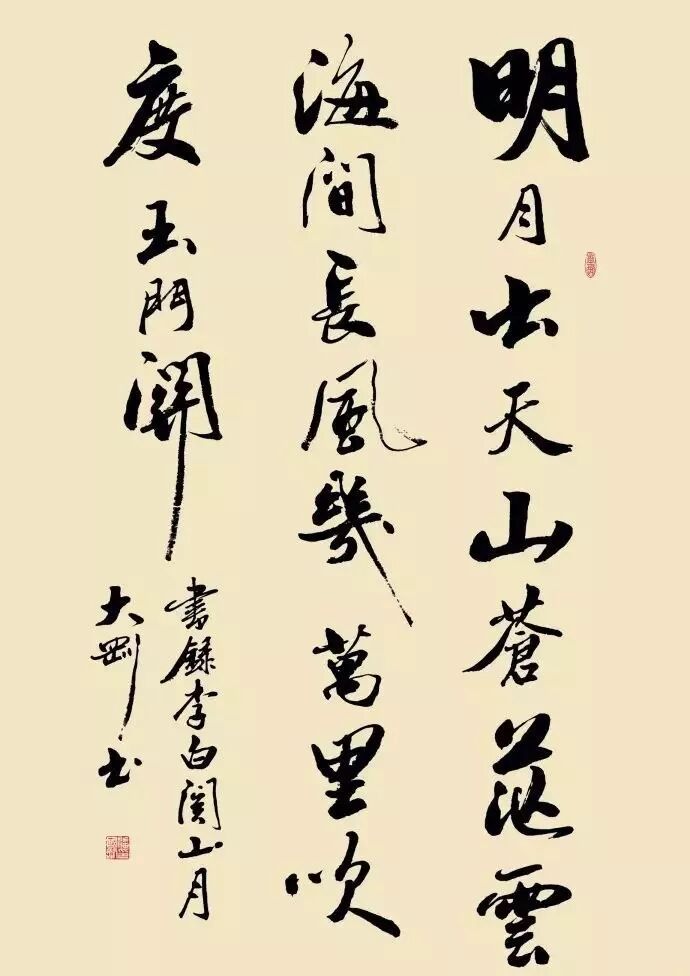 明月出天山蒼茫雲
海間長風幾萬里吹
度玉門關
書錄李白關山月
大剛書